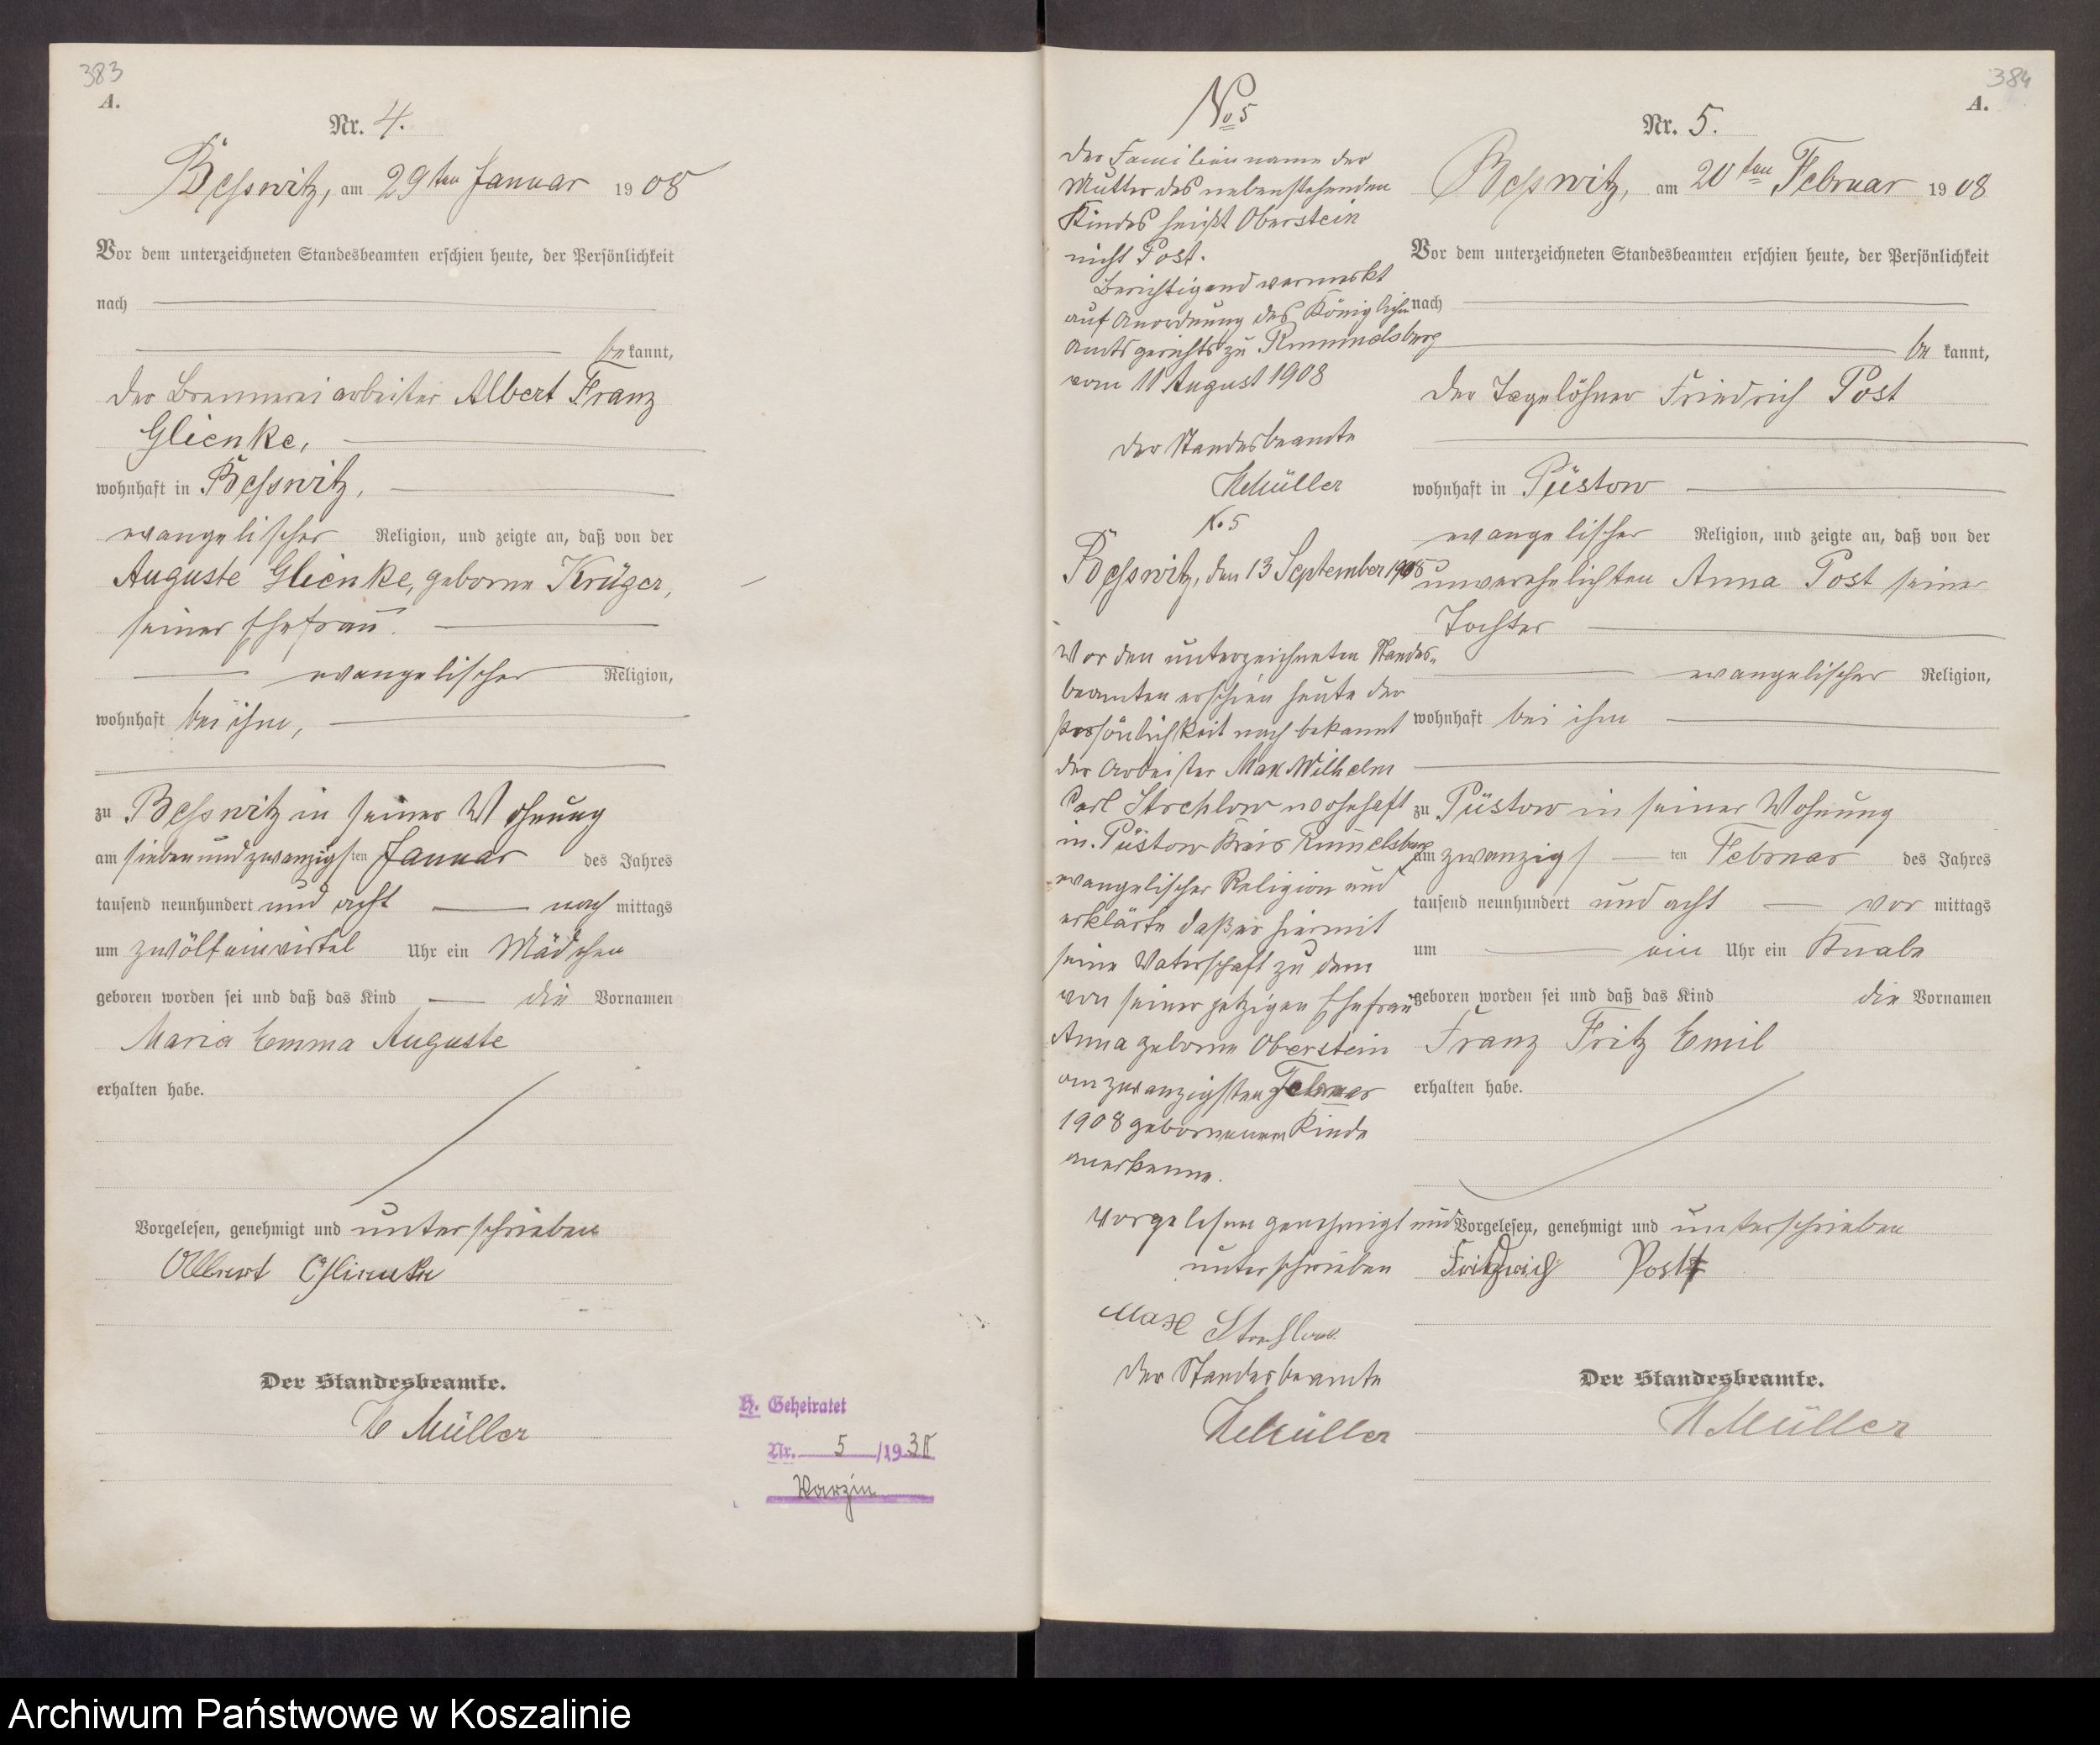 383
A.
Nr. 4.
Beßwitz, am 29ten Januar 1908
Vor dem unterzeichneten Standesbeamten erschien heute, der Persönlichkeit
nach
bekannt,
der Brennereiarbeiter Albert Franz
Glienke,
wohnhaft in Beßwitz,
evangelischer Religion, und zeigte an, daß von der
Auguste Glienke, geborne Krüger,
seiner Ehefrau.
evangelischer Religion,
wohnhaft bei ihm,
zu Beßwitz in seiner Wohnung
am siebenundzwanzigsten Januar des Jahres
tausend neunhundert und acht nachmittags
um zwölfeinviertel Uhr ein Mädchen
geboren worden sei und daß das Kind die Vornamen
Maria Emma Auguste
erhalten habe.
Vorgelesen, genehmigt und unterschrieben
Albert Glienke
Der Standesbeamte.
H Müller
H. Geheiratet
Nr. 5 /19
Warzin
No 5
Der Familienname der
Mutter des nebenstehenden
Kindes heißt Oberstein
nicht Post.
Berichtigend vermerkt
auf Anordnung des Königlichen
Amtsgerichts zu Rummelsburg
vom 11 August 1908
Der Standesbeamte
HMüller
N. 5
Beßwitz, den 13 September 1908
Vor den unterzeichneten Standes-
beamten erschien heute der
Persönlichkeit nach bekannt
der Arbeiter Max Wilhelm
Carl Strehlow wohnhaft
in Püstow Kreis Rummelsburg
evangelischer Religion und
erklärte daß er hiermit
seine Vaterschaft zu dem
von seiner jetzigen Ehefrau
Anna geborne Oberstein
am zwanzigsten Februar
1908 geborenen Kinde
anerkenne.
Vorgelesen genehmigt und
unterschrieben
Max Strehlow
Der Standesbeamte
HMüller
384
A.
Nr. 5.
Beßwitz, am 20ten Februar 1908
Vor dem unterzeichneten Standesbeamten erschien heute, der Persönlichkeit
nach
bekannt,
der Tagelöhner Friedrich Post
wohnhaft in Püstow
evangelischer Religion, und zeigte an, daß von der
unverehelichten Anna Post seiner
Tochter
evangelischer Religion,
wohnhaft bei ihm
zu Püstow in seiner Wohnung
am zwanzigsten Februar des Jahres
tausend neunhundert und acht vormittags
um ein Uhr ein Knabe
geboren worden sei und daß das Kind die Vornamen
Franz Fritz Emil
erhalten habe.
Vorgelesen, genehmigt und unterschrieben
Post
Der Standesbeamte.
HMüller
Archiwum Państwowe w Koszalinie